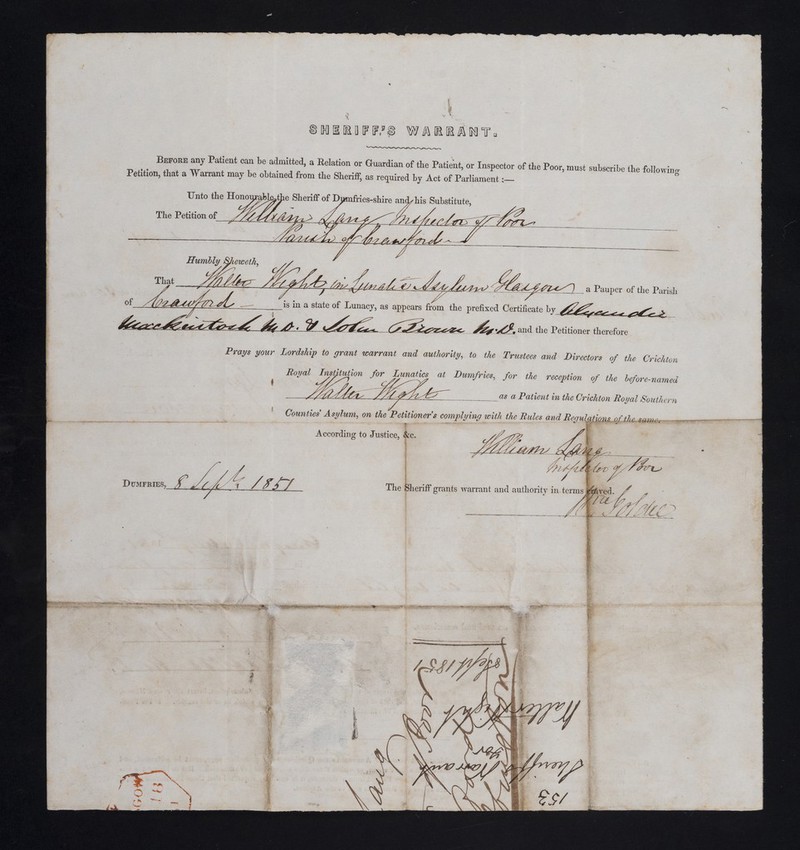 SHERIFF'S WARRANT.
BEFORE any Patient can be admitted, a Relation or Guardian of the Patient, or Inspector of the Poor, must subscribe the following
Petition, that a Warrant may be obtained from the Sheriff, as required by Act of Parliament:—
Unto the Honourable the Sheriff of Dumfries-shire and his Substitute,
The Petition of William Lang Inspector of Poor
Parish of Crawford
Humbly Sheweth,
That Walter Wight, in Lunatic Asylum Glasgow a Pauper of the Parish
of Crawford is in a state of Lunacy, as appears from the prefixed Certificate by Alexander
Mackintosh M.D. & John Brown M.D. and the Petitioner therefore
Prays your Lordship to grant warrant and authority, to the Trustees and Directors of the Crichton
Royal Institution for Lunatics at Dumfries, for the reception of the before-named
Walter Wight as a Patient in the Crichton Royal Southern
Counties' Asylum, on the Petitioner's complying with the Rules and Regulations of the same.
According to Justice, &c.
William Lang
Inspector of Poor
DUMFRIES, 8 Sept. 1851
The Sheriff grants warrant and authority in terms craved.
Goldie
153
Sheriff's Warrant
for
Walter Wight
8 Sept 1851
Lang
GOW
18